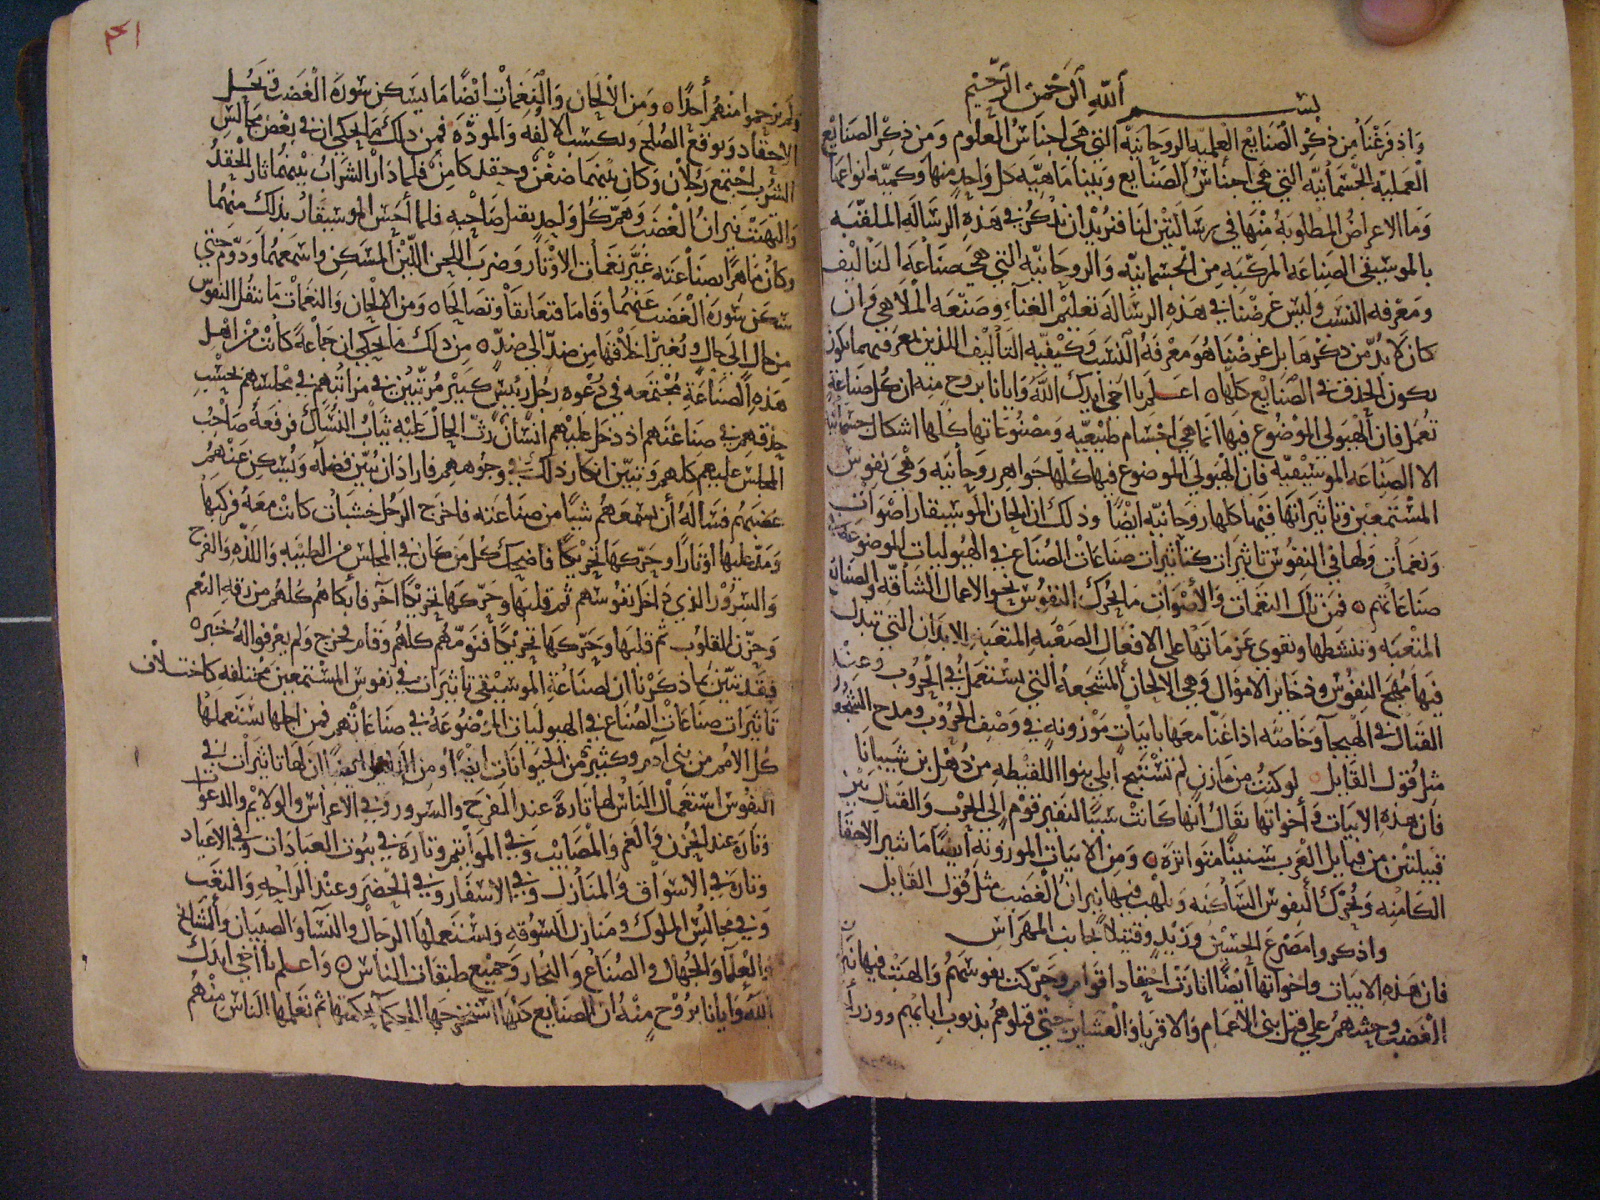 بسم الله الرحمن الرحيم
واذ فرغنا من ذكر الصنايع العلميه الروحانيه التي هي اجناس العلوم ومن ذكر الصنايع
العمليه الجسمانيه التي هي اجناس الصنايع وبينا ماهيه كل واحد منها وكميه انواعها
وما الاعراض المطلوبة منها في رسالتين لنا فنريد ان نذكر في هذه الرسالة الملقبه
بالموسيقي الصناعه المركبه من الجسمانيه والروحانيه التي هي صناعة التاليف
ومعرفه النسب وليس غرضنا في هذه الرسالة تعليم الغناء وصنعه الملاهي وان
كان لا بد من ذكرها بل غرضنا هو معرفة النسب وكيفيه التأليف اللذين بمعرفتهما يكون
يكون الحذق في الصنايع كلها اعلم يا اخي ايدك الله وايانا بروح منه ان كل صناعة
تعمل فان الهيولى الموضوع فيها انما هي اجسام طبيعيه ومصنوعاتها كلها اشكال جسمانية
الا الصناعه الموسيقيه فان الهيولى الموضوع فيها كلها جواهر روحانيه وهي نفوس
المستمعين وتاثيراتها فيها كلها روحانيه ايضا وذلك ان الحان الموسيقار اصوات
ونغمات ولها في النفوس تاثيرات كتاثيرات صناعات الصناع في الهيوليات الموضوعة في
صناعاتهم فمن تلك النغمات والاصوات ما يحرك النفوس نحو الاعمال الشاقه والصنايع
المتعبه وتنشطها وتقوي عزماتها على الافعال الصعبه المتعبة الابدان التي تبذل
فيها مهج النفوس وذخاير الاموال وهي الالحان المشجعة التي تستعمل في الحروب وعند
القتال في الهيجا وخاصه اذا غنا معها بابيات موزونه في وصف الحروب ومدح الشجعان
مثل قول القايل لو كنت من مازن لم تستبح ابلي بنوا اللقيطه من ذهل بن شيبانا
فان هذه الابيات وأخواتها يقال انها كانت سببا لنفير قوم الى الحرب والقتال بين
قبيلتين من قبايل العرب سنينا متواترة ومن الابيات الموزونه أيضا ما تثير الاحقاد
الكامنه وتحرك النفوس الساكنه ويلهب فيها نيران الغضب مثل قول القايل
واذكروا مصرع الحسين وزيد وقتيلا بجانب المهراس
فان هذه الابيات واخواتها ايضا اثارت احقاد اقوام وحركت نفوسهم والهبت فيها نيران
الغضب وحثهم على قتل بني الاعمام والاقربا والعشاير حتى قتلوهم بذنوب ابائهم ووزر
ولم يرحموا منهم أحدا ومن الالحان والنغمات ايضا ما يسكن سورة الغضب وتحل
الاحقاد ويوقع الصلح ويكسب الالفه والمودة فمن ذلك ما يحكى ان في بعض مجالس
الشرب اجتمع رجلان وكان بينهما ضغن وحقد كامن فلما دار الشراب بينهما ثار الحقد
والتهبت نيران الغضب وهم كل واحد بقتل صاحبه فلما أحس الموسيقار بذلك منهما
وكان ماهرا بصناعته غير نغمات الاوتار وضرب اللحن اللين المسكن واسمعهما وداوم حتى
سكن سورة الغضب عنهما وقاما فتعانقا وتصالحا ومن الالحان والنغمات ما تنقل النفوس
من حال الى حال وتغير اخلاقها من ضد الى ضد من ذلك ما يحكى ان جماعة كانت من اهل
هذه الصناعة مجتمعه في دعوه رجل رئيس كبير مرتبين في مراتبهم في مجلسهم بحسب
حذقهم في صناعتهم اذ دخل عليهم انسان رث الحال عليه ثياب النساك فرفعه صاحب
المجلس عليهم كلهم وتبين انكار ذلك في وجوههم فاراد ان يبين فضله ويسكن عنهم
غضبهم فسأله أن يسمعهم شيا من صناعته فاخرج الرجل خشبات كانت معه فركبها
ومد عليها اوتارا وحركها تحريكا فاضحك كل من كان في المجلس من الطيبه واللذه والفرح
والسرور الذي داخل نفوسهم ثم قلبها وحركها تحريكا آخر فأبكاهم كلهم من رقه النغم
وحزن للقلوب ثم قلبها وحركها تحريكا فنومهم كلهم وقام وخرج ولم يعرفوا له خبره
فقد تبين بما ذكرنا ان لصناعة الموسيقي تأثيرات في نفوس المستمعين مختلفه كاختلاف
تاثيرات صناعات الصناع في الهيوليات الموضوعة في صناعاتهم فمن اجلها يستعملها
كل الامم من بني آدم وكثير من الحيوانات ايضا ومن ان لها تاثيرات في
النفوس استعمال الناس لها تارة عند الفرح والسرور وفي الاعراس والولايم والدعوات
وتاره عند الحزن والغم والمصايب وفي الموآتم وتارة في بيوت العبادات وفي الاعياد
وتارة في الاسواق والمنازل وفي الاسفار وفي الحضر وعند الراحه والتعب
وفي مجالس الملوك ومنازل السوقه ويستعملها الرجال والنسا والصبيان والمشايخ
والعلما والجهال والصناع والتجار وجميع طبقات الناس واعلم يا أخي ايدك
الله وايانا بروح منه ان الصنايع كلها استخرجها الحكما بحكمتها ثم تعلمها الناس منهم